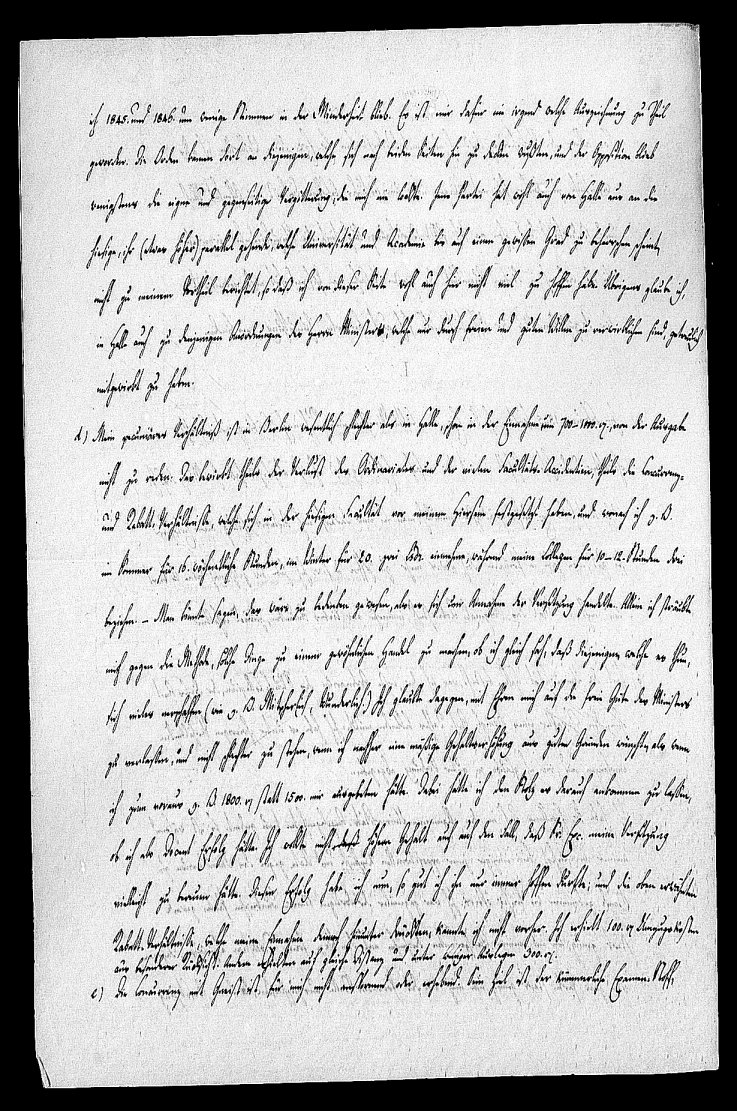 ich 1845. und 1846. um wenige Stimmen in der Minderheit blieb. Es ist mir dafür nie irgend welche Auszeichnung zu Theil
geworden. Die Orden kamen dort an diejenigen, welche sich nach beiden Seiten hin zu decken wußten, und der Opposition blieb
wenigstens die eigne und gegenseitige Vergötterung, die mich nie lockte. Jene Partei hat wohl auch von Halle aus an die
hiesige, ihr (etwas höher) parallel gehende, welche Universität und Academie bis auf einen gewissen Grad zu beherrschen scheint,
nicht zu meinem Vortheil berichtet, so daß ich von dieser Seite wohl auch hier nicht viel zu hoffen habe. Übrigens glaube ich,
in Halle auch zu denjenigen Anordnungen des Herrn Ministers, welche nur durch freien und guten Willen zu verwirklichen sind, getreulich
mitgewirkt zu haben.
d) Mein pecuniäres Verhältniß ist in Berlin wesentlich schlechter als in Halle, schon in der Einnahme um 700-1000. von der Ausgabe
nicht zu reden. Das bewirkt theils der Verlust des Ordinariates und der vielen Facultäts-Accidentien, theils die Concurrenz-
und Rabatt-Verhältnisse, welche sich in der hiesigen Facultät vor meinem Hiersein festgesetzt haben, und wonach ich z. B.
im Sommer für 16. wöchentliche Stunden, im Winter für 20. zwei einnehme, während meine Collegen für 10-12. Stunden drei
beziehen. - Man könnte sagen, das wäre zu bedenken gewesen, als es sich um Annahme der Versetzung handelte. Allein ich sträubte
mich gegen die Methode, solche Dinge zu einem gewöhnlichen Handel zu machen, ob ich gleich sah, daß diejenigen, welche es thun,
sich vieles verschaffen (wie z. B. Mitscherlich, Wunderlich.) Ich glaubte dagegen, mit Ehren mich auf die freie Güte des Ministers
zu verlassen, und nicht schlechter zu stehen, wenn ich nachher eine mäßige Gehaltserhöhung aus guten Gründen wünschte, als wenn
ich zum voraus z. B. 1800. statt 1500. mir ausgebeten hätte. Dabei hatte ich den Stolz es darauf ankommen zu lassen,
ob ich als Docent Erfolg hätte. Ich wollte nicht höhern Gehalt auch auf den Fall, daß Se. Exc. meine Versetzung
vielleicht zu bereuen hätte. Diesen Erfolg habe ich nun, so gut ich ihn nur immer hoffen durfte; und die oben erwähnten
Rabatt-Verhältnisse, welche meine Einnahme dennoch hinunter drückten, kannte ich nicht vorher. Ich erhielt 100. Umzugskosten
aus besonderer Rücksicht. Andere erhielten auf gleiche Distanz und unter weniger Auslagen 300.
e) Die Concurrenz mit Gneist ist für mich nicht anstrengend oder erhebend. Sein Ziel ist der kümmerliche Examen-Stoff,